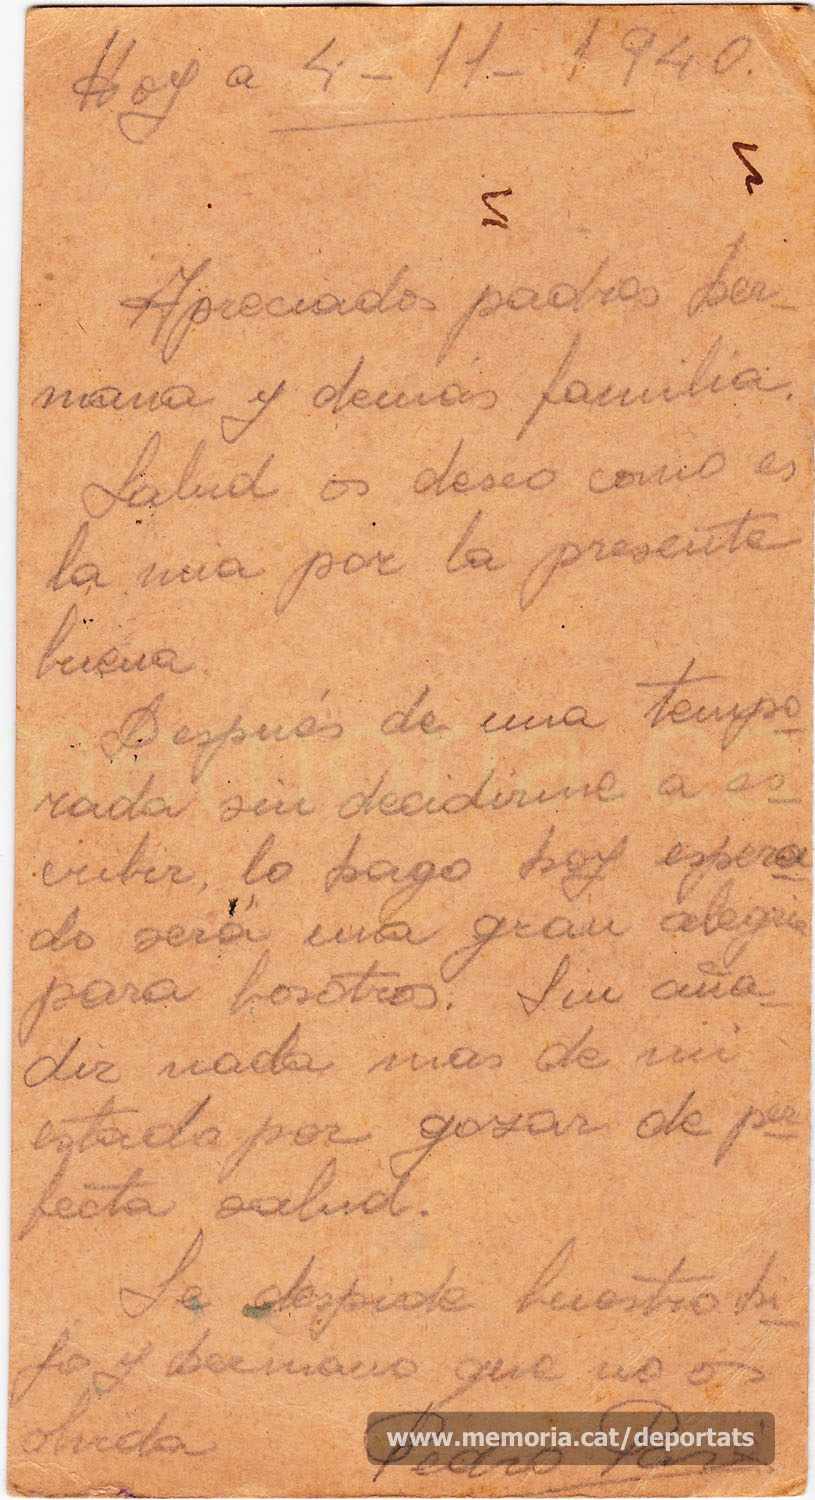 Hoy a 4-11-1940.
Apreciados padres her-
mana y demás familia.
Salud os deseo como es
la mia por la presente
buena.
Después de una tempo-
rada sin decidirme a es-
cribir, lo hago hoy espera
do será una gran alegria
para bosotros. Sin aña-
dir nada mas de mi
estado por gozar de per-
fecta salud.
Se despide buestro hi-
jo y hermano que no os
olvida
Pedro
www.memoria.cat/deportats